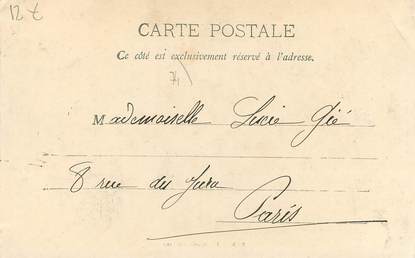 12 €
CARTE POSTALE
Ce côté est exclusivement réservé à l'adresse.
74
Mademoiselle Lucie Gié
8 rue du Jura
Paris